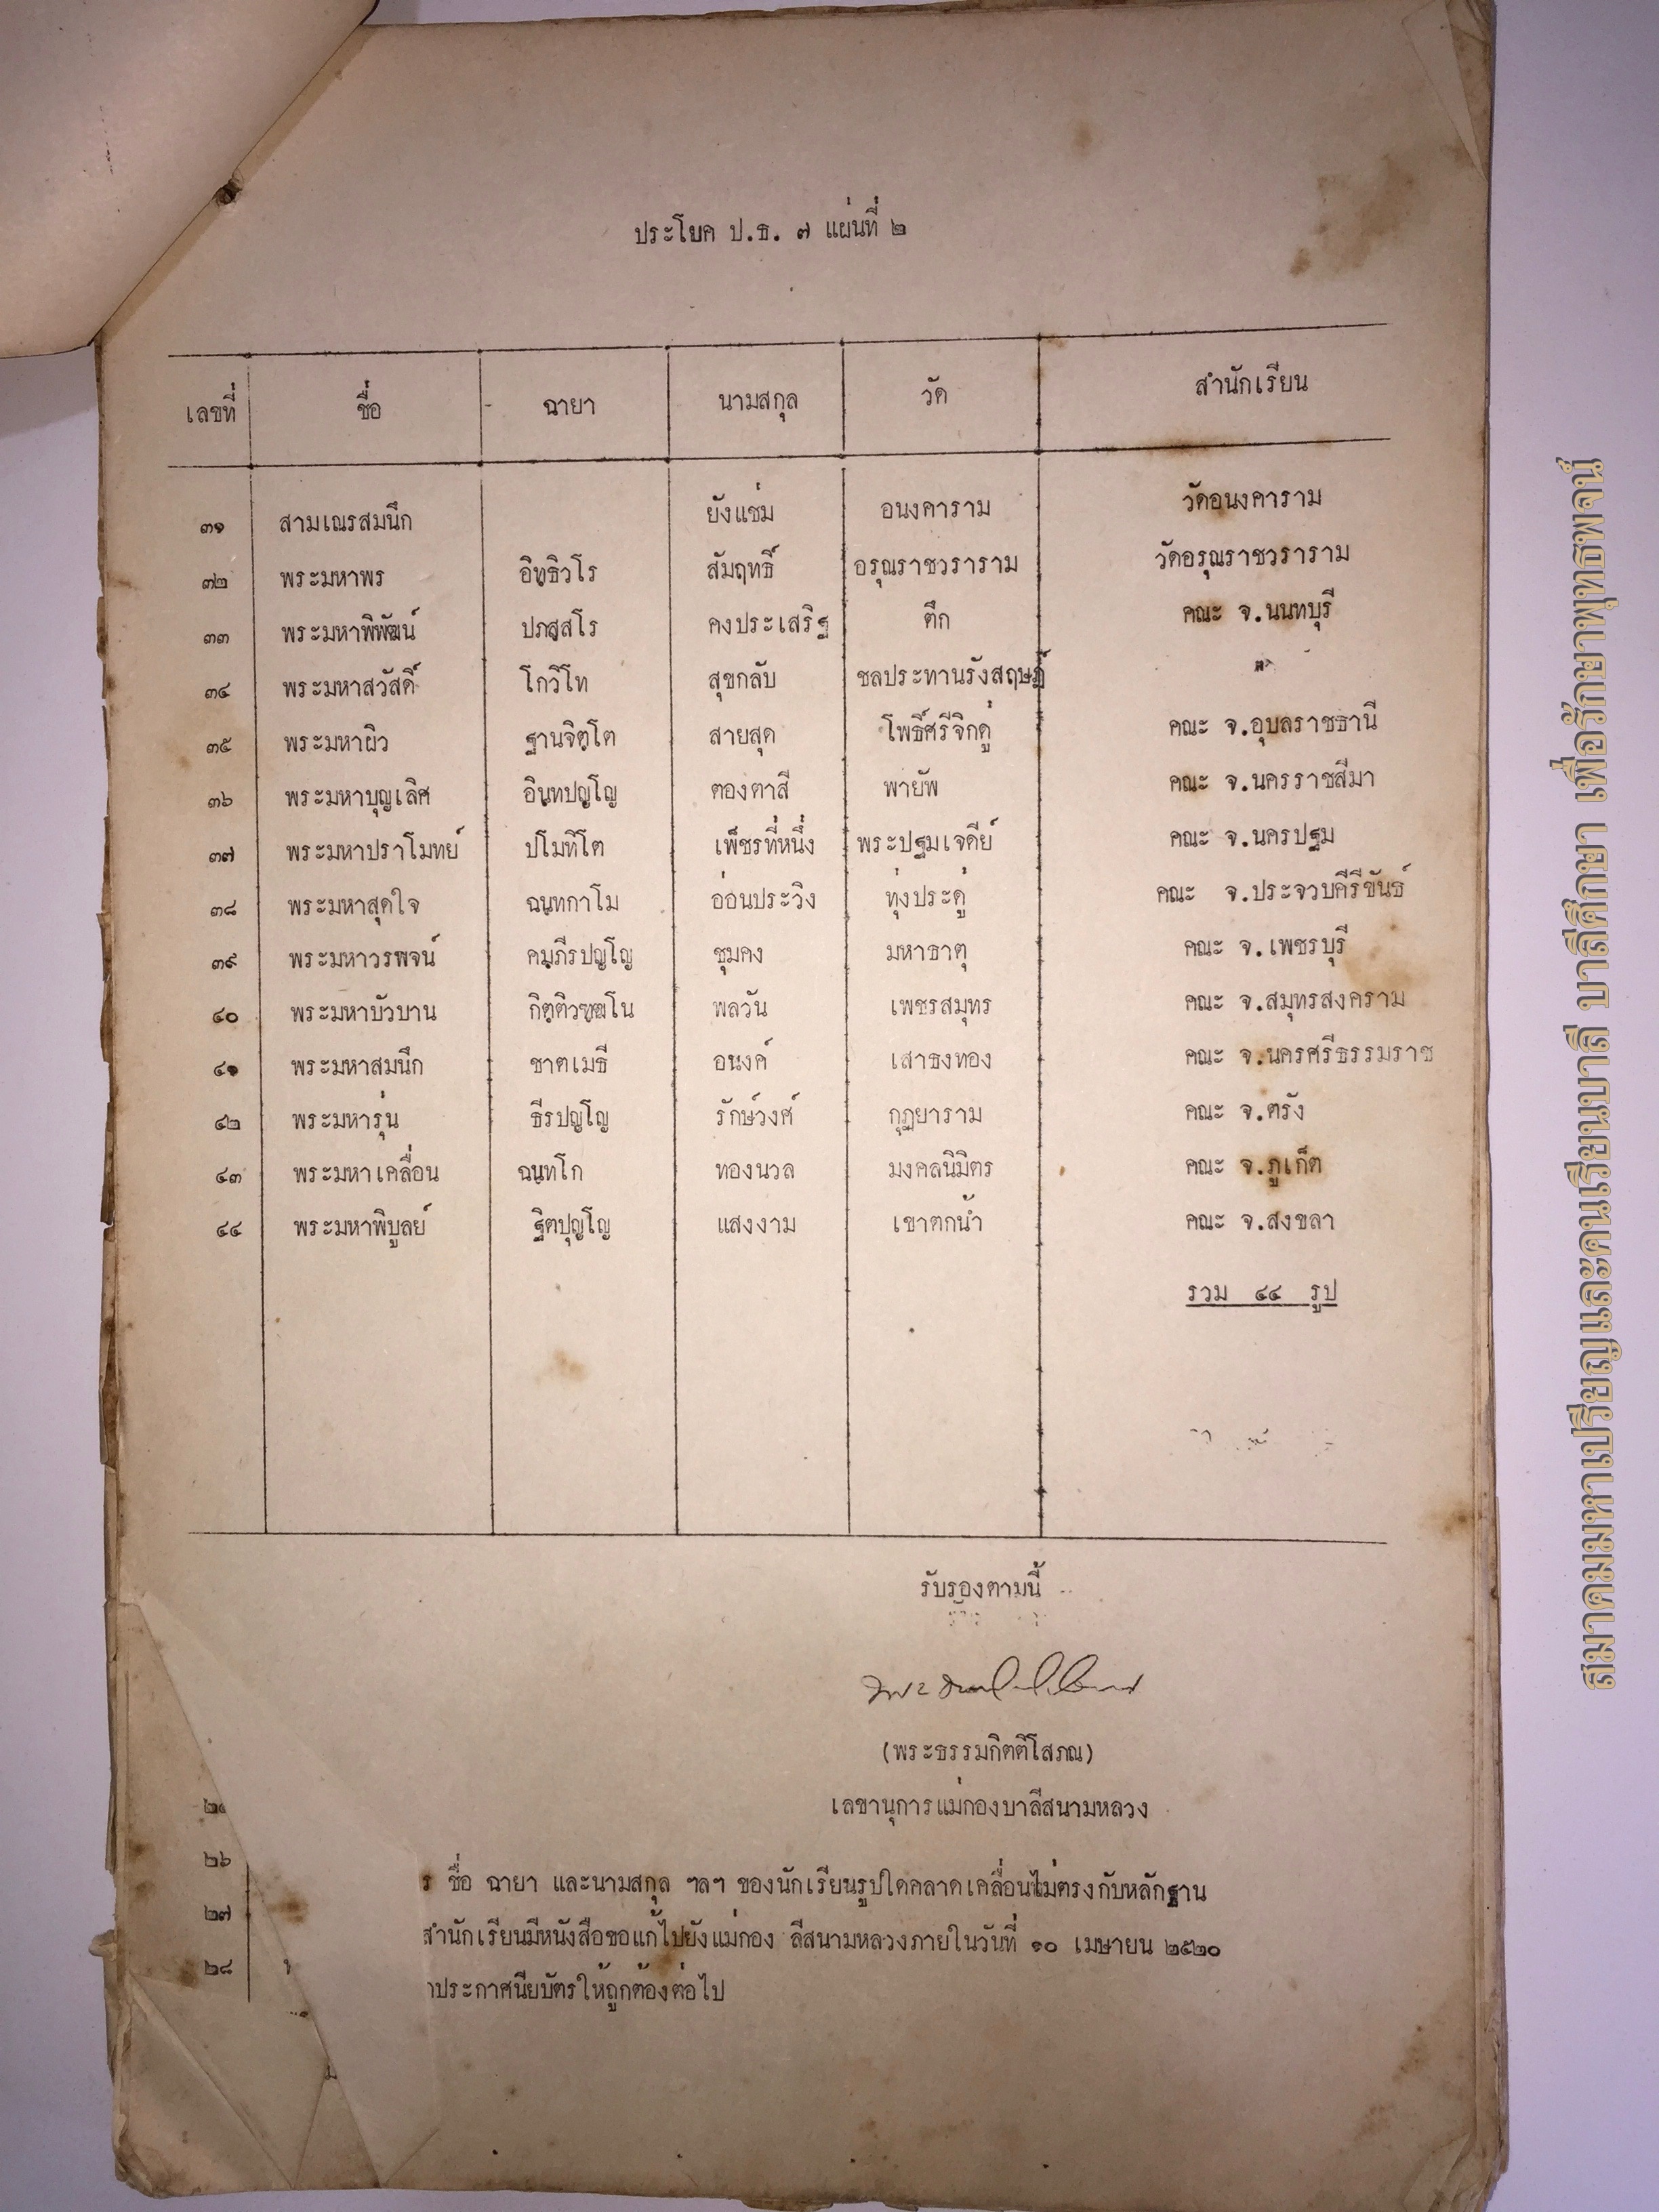 ประโยค ป.ธ. ๗ แผ่นที่ ๒
เลขที่ ชื่อ ฉายา นามสกุล วัด สำนักเรียน
๓๑ สามเณรสมนึก ยังแช่ม อนงคาราม วัดอนงคาราม
๓๒ พระมหาพร อิทฺธิวโร สัมฤทธิ์ อรุณราชวราราม วัดอรุณราชวราราม
๓๓ พระมหาพิพัฒน์ ปภสฺสโร คงประเสริฐ ตึก คณะ จ.นนทบุรี
๓๔ พระมหาสวัสดิ์ โกวิโท สุขกลับ ชลประทานรังสฤษฎ์ "
๓๕ พระมหาผิว ฐานจิตฺโต สายสุด โพธิ์ศรีจิกดู่ คณะ จ.อุบลราชธานี
๓๖ พระมหาบุญเลิศ อินฺทปญฺโญ ตองตาสี พายัพ คณะ จ.นครราชสีมา
๓๗ พระมหาปราโมทย์ ปโมทิโต เพ็ชรที่หนึ่ง พระปฐมเจดีย์ คณะ จ.นครปฐม
๓๘ พระมหาสุดใจ ฉนฺทกาโม อ่อนประวิง ทุ่งประดู่ คณะ จ.ประจวบคีรีขันธ์
๓๙ พระมหาวรพจน์ คมฺภีรปญฺโญ ชุมคง มหาธาตุ คณะ จ.เพชรบุรี
๔๐ พระมหาบัวบาน กิตฺติวฑฺฒโน พลวัน เพชรสมุทร คณะ จ.สมุทรสงคราม
๔๑ พระมหาสมนึก ชาตเมธี อนงค์ เสาธงทอง คณะ จ.นครศรีธรรมราช
๔๒ พระมหารุ่น ธีรปญฺโญ รักษ์วงศ์ กุฏยาราม คณะ จ.ตรัง
๔๓ พระมหาเคลื่อน ฉนฺทโก ทองนวล มงคลนิมิตร คณะ จ.ภูเก็ต
๔๔ พระมหาพิบูลย์ ฐิตปุญฺโญ แสงงาม เขาตกน้ำ คณะ จ.สงขลา
รวม ๔๔ รูป
รับรองตามนี้
(พระธรรมกิตติโสภณ)
เลขานุการแม่กองบาลีสนามหลวง
๒๖
๒๗
๒๘
ร ชื่อ ฉายา และนามสกุล ฯลฯ ของนักเรียนรูปใดคลาดเคลื่อนไม่ตรงกับหลักฐาน
สำนักเรียนมีหนังสือขอแก้ไปยังแม่กอง ลีสนามหลวงภายในวันที่ ๑๐ เมษายน ๒๕๒๐
าประกาศนียบัตรให้ถูกต้องต่อไป
สมาคมมหาเปรียญและคนเรียนบาลี บาลีศึกษา เพื่อรักษาพุทธพจน์